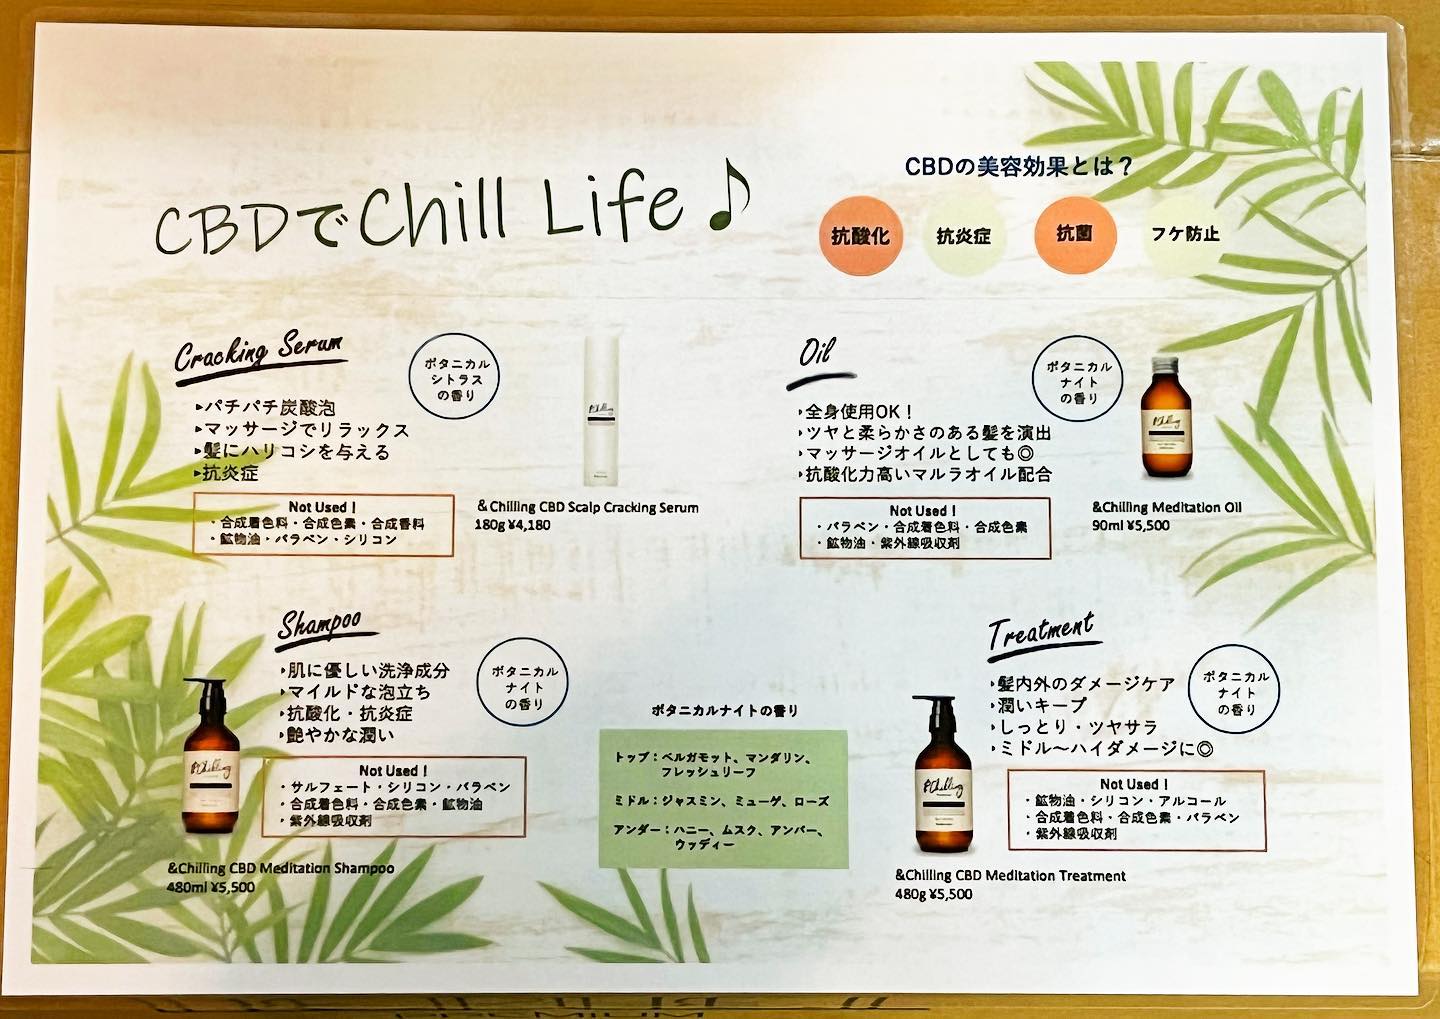 CBDでChill Life♪
CBDの美容効果とは？
抗酸化
抗炎症
抗菌
フケ防止
Cracking Serum
ボタニカル
シトラス
の香り
▸パチパチ炭酸泡
▸マッサージでリラックス
▸髪にハリコシを与える
▸抗炎症
Not Used！
・合成着色料・合成色素・合成香料
・鉱物油・パラベン・シリコン
&Chilling
＆Chilling CBD Scalp Cracking Serum
180g ¥4,180
Oil
ボタニカル
ナイト
の香り
▸全身使用OK！
▸ツヤと柔らかさのある髪を演出
▸マッサージオイルとしても◎
▸抗酸化力高いマルラオイル配合
Not Used！
・パラベン・合成着色料・合成色素
・鉱物油・紫外線吸収剤
&Chilling
&Chilling Meditation Oil
90ml ¥5,500
Shampoo
ボタニカル
ナイト
の香り
▸肌に優しい洗浄成分
▸マイルドな泡立ち
▸抗酸化・抗炎症
▸艶やかな潤い
Not Used！
・サルフェート・シリコン・パラベン
・合成着色料・合成色素・鉱物油
・紫外線吸収剤
&Chilling
&Chilling CBD Meditation Shampoo
480ml ¥5,500
ボタニカルナイトの香り
トップ：ベルガモット、マンダリン、
フレッシュリーフ
ミドル：ジャスミン、ミューゲ、ローズ
アンダー：ハニー、ムスク、アンバー、
ウッディー
Treatment
ボタニカル
ナイト
の香り
▸髪内外のダメージケア
▸潤いキープ
▸しっとり・ツヤサラ
▸ミドル〜ハイダメージに◎
Not Used！
・鉱物油・シリコン・アルコール
・合成着色料・合成色素・パラベン
・紫外線吸収剤
&Chilling
&Chilling CBD Meditation Treatment
480g ¥5,500
PREMIUM